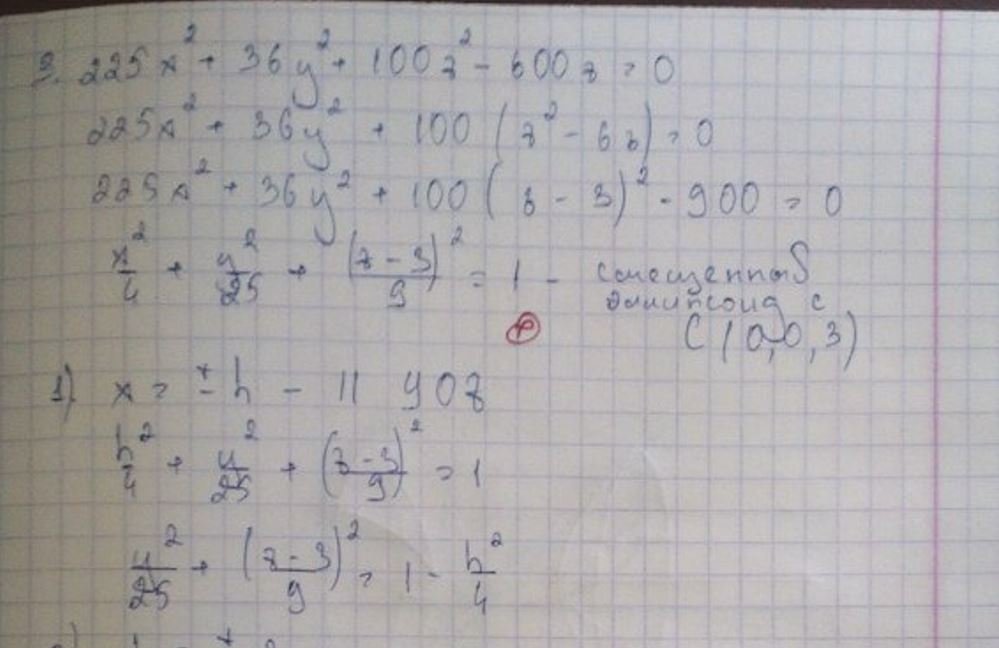 3. 225x² + 36y² + 100z² - 600z = 0
225x² + 36y² + 100(z² - 6z) = 0
225x² + 36y² + 100(z - 3)² - 900 = 0
x²/4 + y²/25 + (z - 3)²/9 = 1 - смещенный
эллипсоид с
C(0,0,3)
1) x = ±h - || yOz
h²/4 + y²/25 + (z - 3)²/9 = 1
y²/25 + (z - 3)²/9 = 1 - h²/4